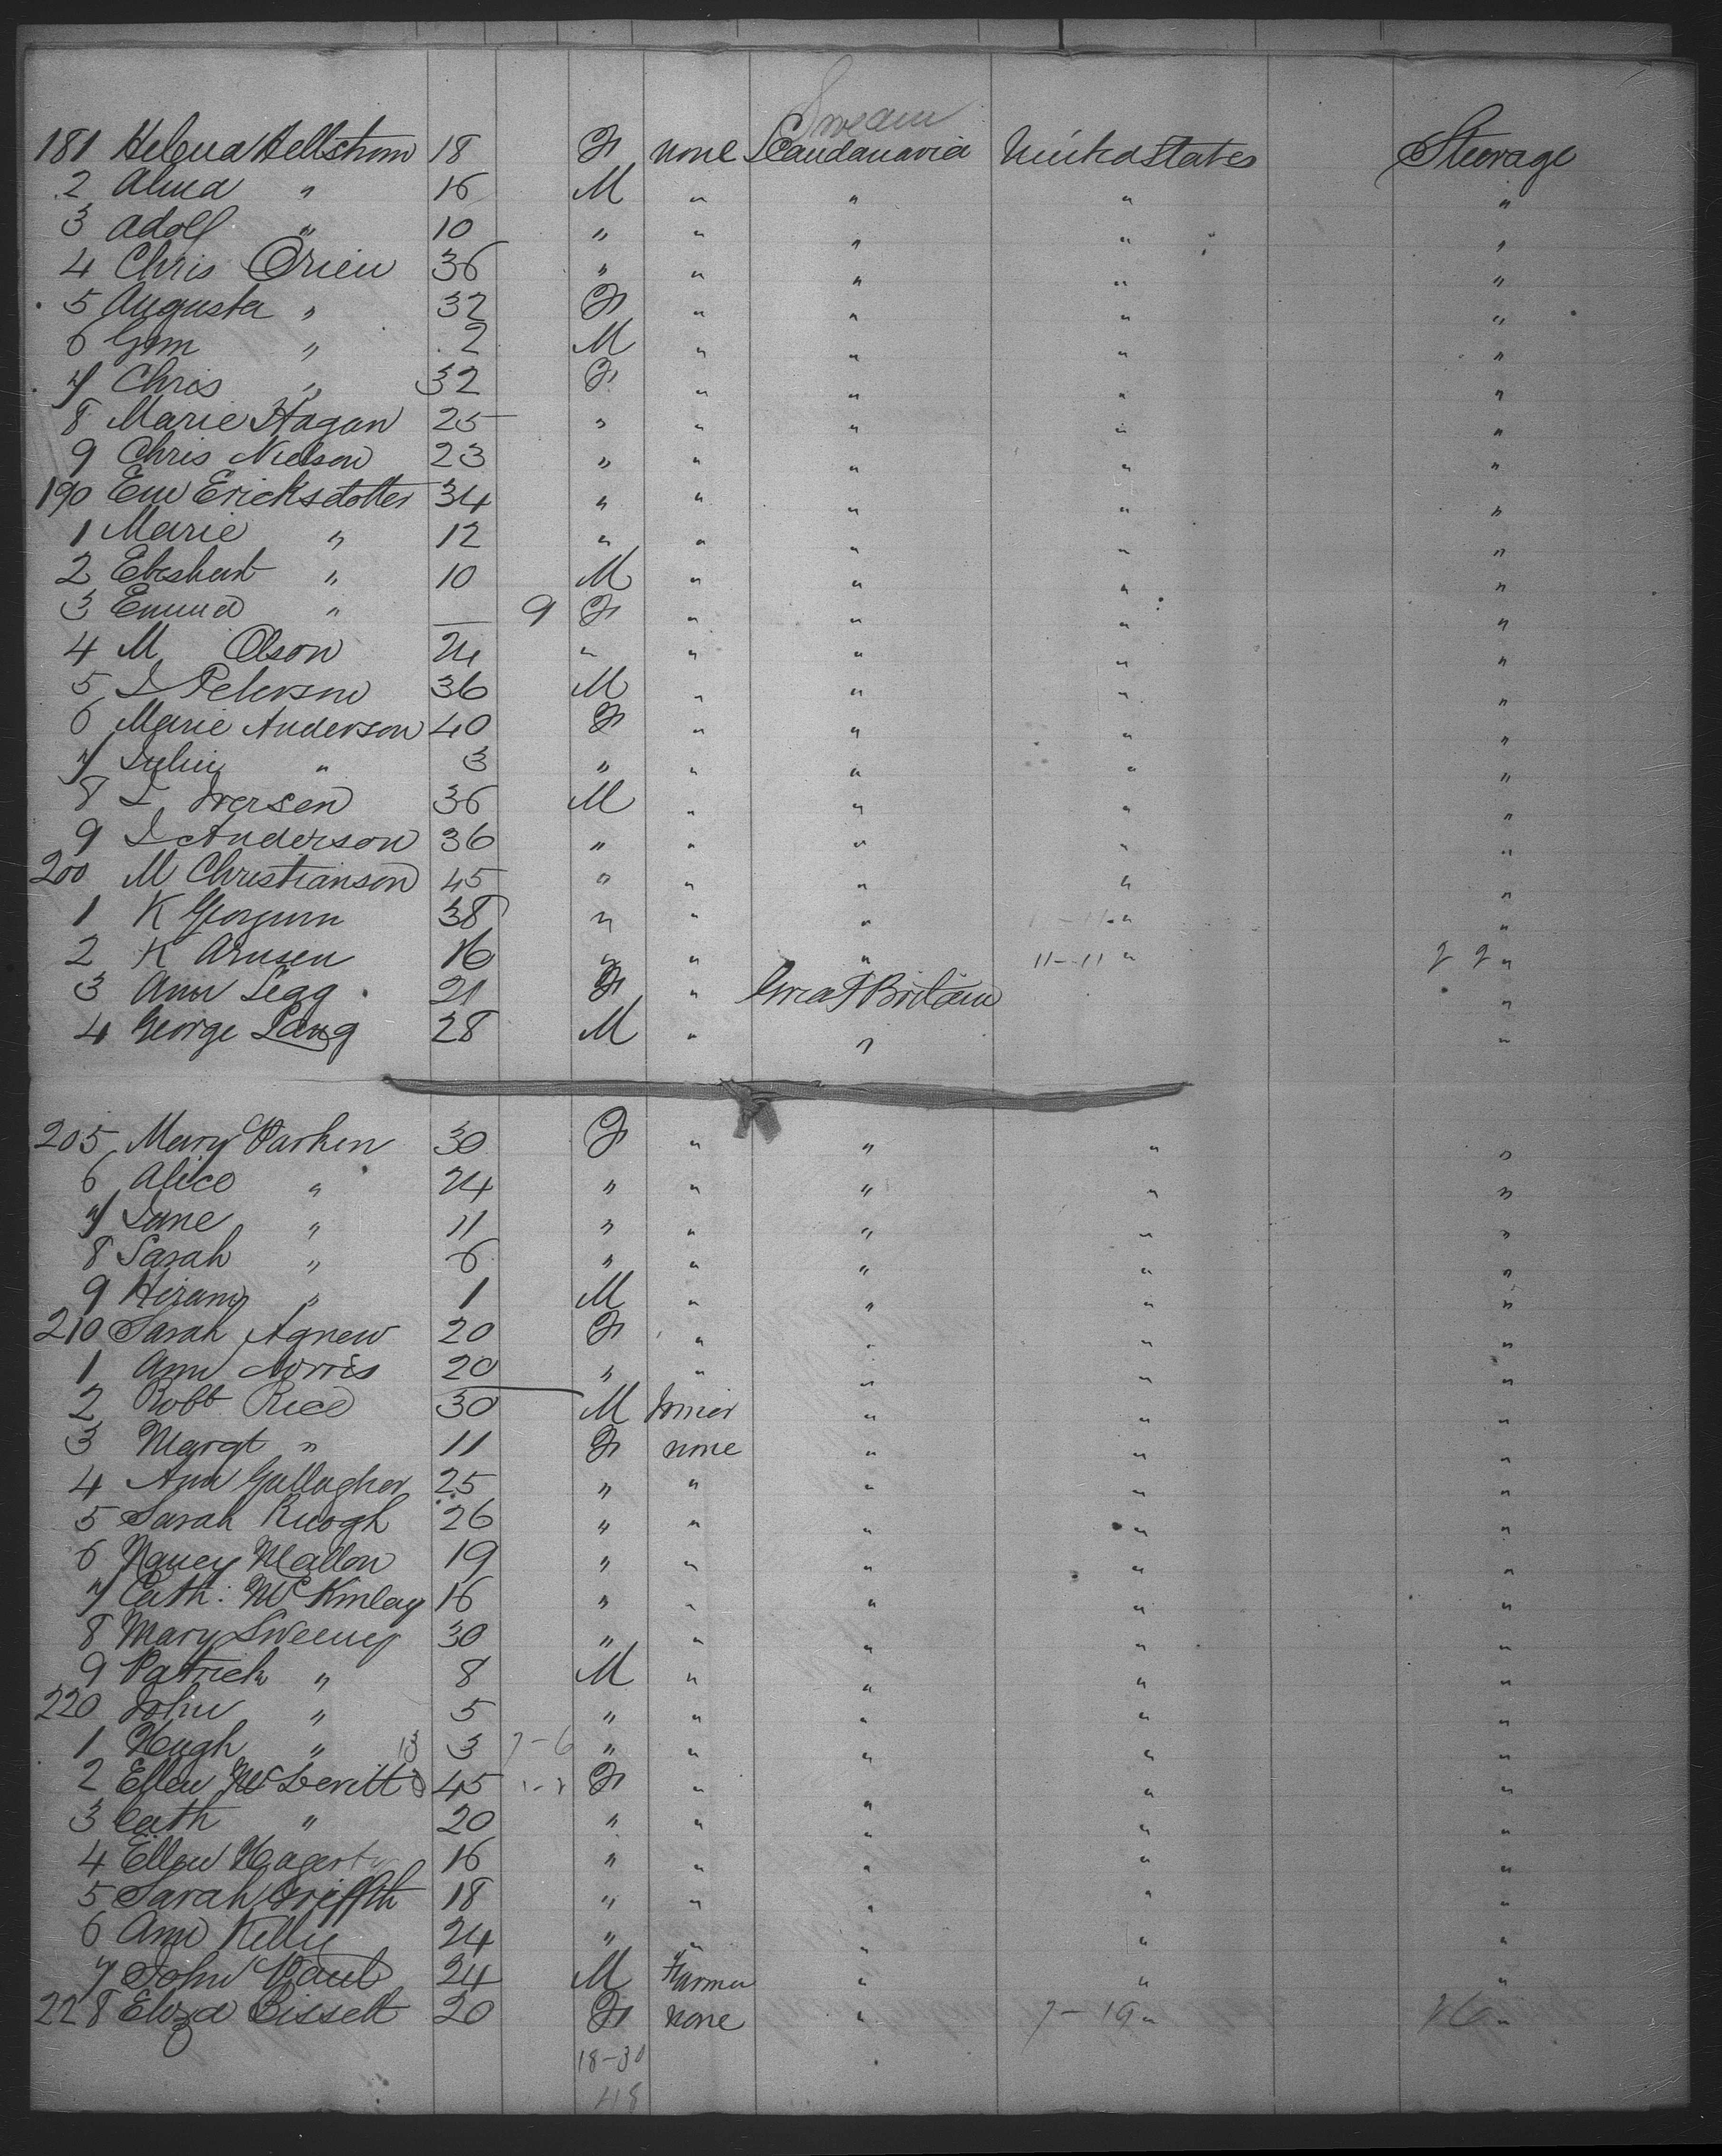 Swearn
181 Helena Hellstrom 18 F none Scandanavia United States Steerage
2 Alma " 16 M " " " "
3 Adolf " 10 " " " " "
4 Chris Orien 36 " " " " "
5 Augusta " 32 F " " " "
6 Gem " 2 M " " " "
7 Chris " 32 F " " " "
8 Marie Hagan 25 " " " " "
9 Chris Nielson 23 " " " " "
190 Em Ericksdotter 34 " " " " "
1 Marie " 12 " " " " "
2 " 10 M " " " "
3 Emma " — 9 F " " " "
4 M Olson 24 " " " " "
5 I Peterson 36 M " " " "
6 Marie Anderson 40 F " " " "
7 " 3 " " " " "
8 I Iversen 36 M " " " "
9 I Anderson 36 " " " " "
200 M Christianson 45 " " " " "
1 K 38 " " " " "
2 K Arnsen 16 " " " 11-11 " 22 "
3 Ann Legg 21 F " Great Britain "
4 George Lang 28 M " " "
205 Mary Parken 30 F " " " "
6 Alice " 24 " " " " "
7 Jane " 11 " " " " "
8 Sarah " 6 " " " " "
9 Hiram " 1 M " " " "
210 Sarah Agnew 20 F " " " "
1 Ann Norris 20 " " " " "
2 Robt Rice 30 M " " "
3 Margt " 11 F none " " "
4 Ann Gallagher 25 " " " " "
5 Sarah Keogh 26 " " " " "
6 Nancy Mallon 19 " " " " "
7 Cath: McKinlay 16 " " " " "
8 Mary Sweeney 30 " " " " "
9 Patrick " 8 M " " " "
220 John " 5 " " " " "
1 Hugh " 13 3 7-6 " " " " "
2 Ellen McDevitt 45 F " " " "
3 Cath " 20 " " " " "
4 Ellen Hagerty 16 " " " " "
5 Sarah Griffith 18 " " " " "
6 Ann Kelly 24 " " " " "
7 John Paul 24 M Farmer " " "
228 Eliza Bissett 20 F none " 7-19 " 26 "
18-30
48